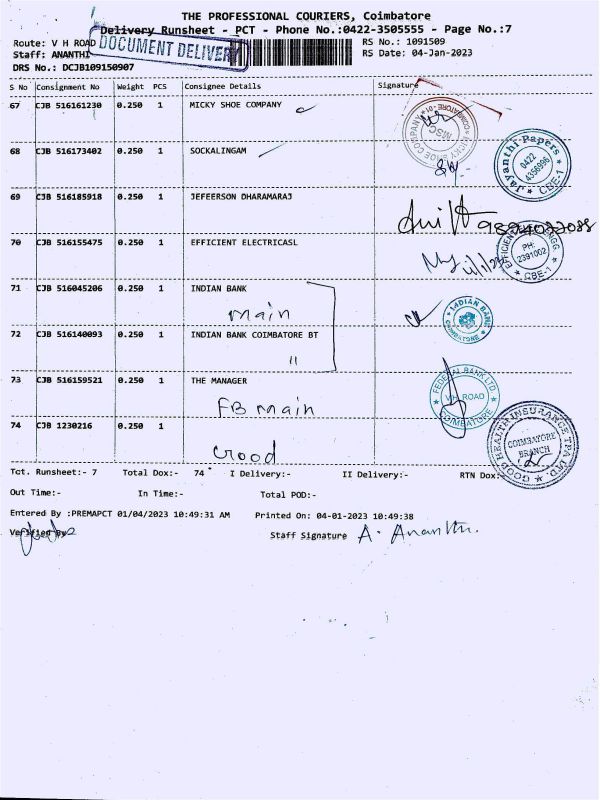 THE PROFESSIONAL COURIERS, Coimbatore
Delivery Runsheet - PCT - Phone No.:0422-3505555 - Page No.:7
Route: V H ROAD
DOCUMENT DELIVERY
RS No.: 1091509
Staff: ANANTHI
RS Date: 04-Jan-2023
DRS No.: DCJB109150907
S No Consignment No Weight PCS Consignee Details Signature
67 CJB 516161230 0.250 1 MICKY SHOE COMPANY
MICKY SHOE COMPANY MSC COIMBATORE-01
68 CJB 516173402 0.250 1 SOCKALINGAM
Jayanthi Papers 0422 4356996 CBE-1
69 CJB 516185918 0.250 1 JEFEERSON DHARAMARAJ
70 CJB 516155475 0.250 1 EFFICIENT ELECTRICASL
EFFICIENT PH: 2391002 CBE-1
71 CJB 516045206 0.250 1 INDIAN BANK
main
INDIAN BANK COIMBATORE
72 CJB 516140093 0.250 1 INDIAN BANK COIMBATORE BT
"
73 CJB 516159521 0.250 1 THE MANAGER
FB main
FEDERAL BANK LTD. V.H. ROAD COIMBATORE
74 CJB 1230216 0.250 1
Good
GOOD HEALTH INSURANCE TPA LTD. COIMBATORE BRANCH
Tot. Runsheet:- 7 Total Dox:- 74 I Delivery:- II Delivery:- RTN Dox:
Out Time:- In Time:- Total POD:-
Entered By :PREMAPCT 01/04/2023 10:49:31 AM Printed On: 04-01-2023 10:49:38
Verified By
Staff Signature A. Ananthi.